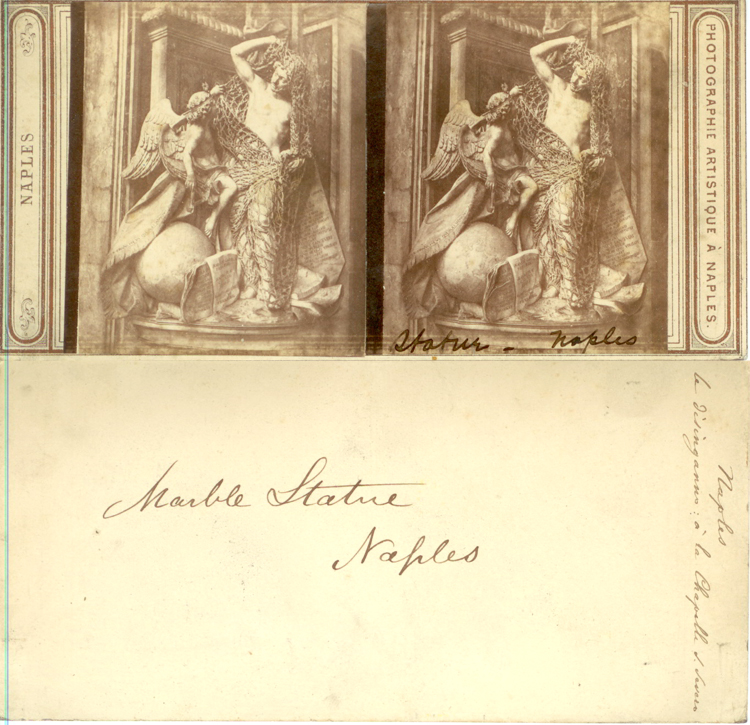 NAPLES
PHOTOGRAPHIE ARTISTIQUE À NAPLES.
Statue - Naples
Marble Statue
Naples
Naples
le disinganno: à la Chapelle S. Severo